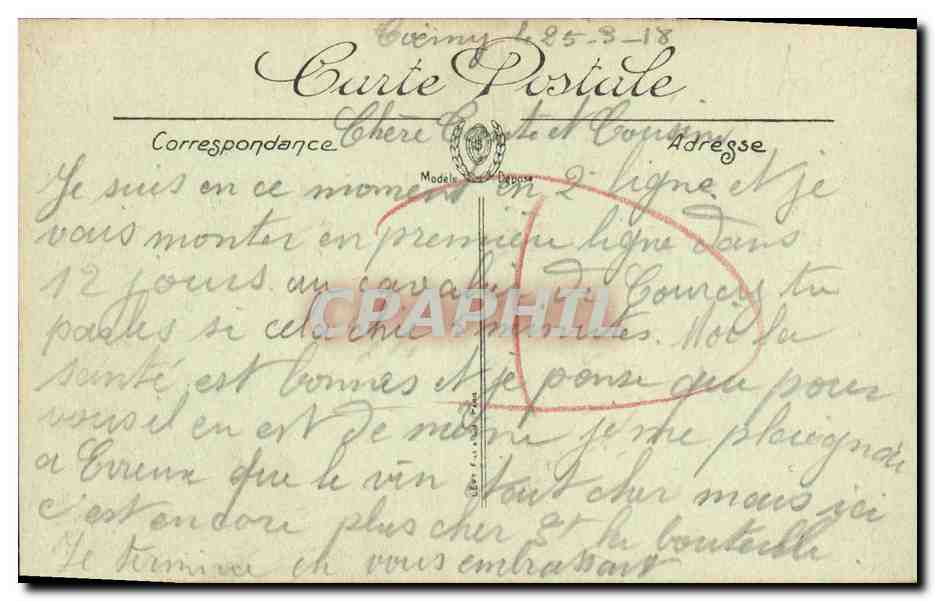 le 25-3-18
Carte Postale
Chère Tante et Cousine
Correspondance
Adresse
Modèle Déposé
Je suis en ce moment en 2e ligne et je
vais monter en première ligne dans
12 jours au cavalier de Courcy tu
parles si cela chie minutes. Moi la
CPAPHIL
santé est bonnes et je pense que pour
vous il en est de même je me plaignai
a Evreux que le vin etait cher mais ici
c'est encore plus cher la bouteille
Je termine en vous embrassant
LÉVY FILS & Cie PARIS